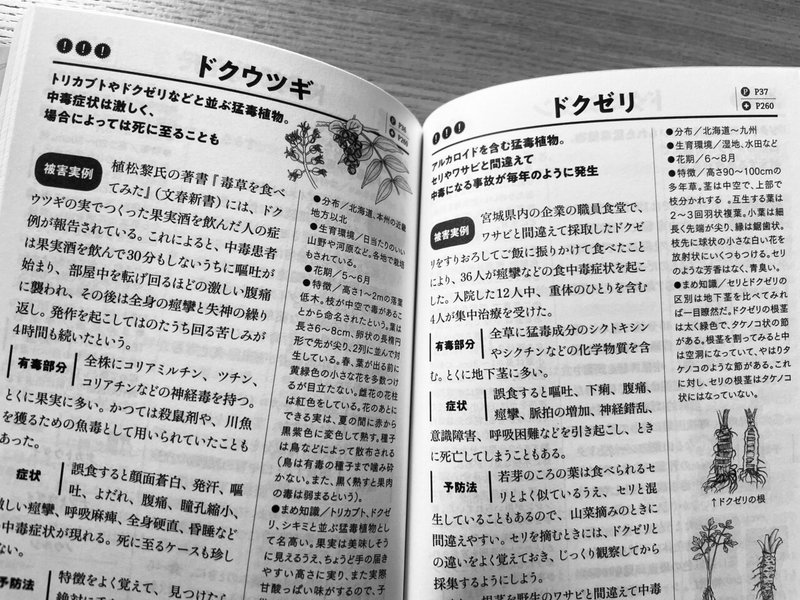 ドクウツギ
トリカブトやドクゼリなどと並ぶ猛毒植物。
中毒症状は激しく、
場合によっては死に至ることも
被害実例 植松黎氏の著書『毒草を食べ
てみた』(文春新書)には、ドク
ウツギの実でつくった果実酒を飲んだ人の症
例が報告されている。これによると、中毒患者
は果実酒を飲んで30分もしないうちに嘔吐が
始まり、部屋中を転げ回るほどの激しい腹痛
に襲われ、その後は全身の痙攣と失神の繰り
返し。発作を起こしてはのたうち回る苦しみが
4時間も続いたという。
有毒部分 全株にコリアミルチン、ツチン、
コリアチンなどの神経毒を持つ。
とくに果実に多い。かつては殺鼠剤や、川魚
を獲るための魚毒として用いられていたことも
あった。
症状 誤食すると顔面蒼白、発汗、嘔
吐、よだれ、腹痛、瞳孔縮小、
激しい痙攣、呼吸麻痺、全身硬直、昏睡など
の中毒症状が現れる。死に至るケースも珍し
くない。
予防法 特徴をよく覚えて、見つけたら
●分布/北海道、本州の近畿
地方以北
●生育環境/日当たりのいい
山野や河原など。各地で栽培
もされている。
●花期/5~6月
●特徴/高さ1~2mの落葉
低木。枝が空中で毒があるこ
とから命名されたという。葉は
長さ6~8cm、卵状の長楕円
形で先が尖り、2列に並んで対
生している。春、葉が出る前に
黄緑色の小さな花を多数つけ
るが目立たない。雌花の花柱
は紅色をしている。花のあとに
できる実は、夏の間に赤から
黒紫色に変色して熟す。種子
は鳥などによって散布される
(鳥は有毒の種子まで噛み砕
かない。また、黒く熟すと果肉
の毒は弱まるという)。
●まめ知識/トリカブト、ドクゼ
リ、シキミと並ぶ猛毒植物とし
て名高い。果実は美味しそう
に見えるうえ、ちょうど手の届き
やすい高さに実り、また実際
甘酸っぱい味がするので、子
ドクゼリ
P37
P260
アルカロイドを含む猛毒植物。
セリやワサビと間違えて
中毒になる事故が毎年のように発生
被害実例 宮城県内の企業の職員食堂で、
ワサビと間違えて採取したドクゼ
リをすりおろしてご飯に振りかけて食べたこと
により、36人が痙攣などの食中毒症状を起こ
した。入院した12人中、重体のひとりを含む
4人が集中治療を受けた。
有毒部分 全草に猛毒成分のシクトキシン
やシクチンなどの化学物質を含
む。とくに地下茎に多い。
症状 誤食すると嘔吐、下痢、腹痛、
痙攣、脈拍の増加、神経錯乱、
意識障害、呼吸困難などを引き起こし、とき
に死亡してしまうこともある。
予防法 若芽のころの葉は食べられるセ
リとよく似ているうえ、セリと混
生していることもあるので、山菜摘みのときに
間違えやすい。セリを摘むときには、ドクゼリと
の違いをよく覚えておき、じっくり観察してから
採集するようにしよう。
また、根茎を野生のワサビと間違えて中毒
●分布/北海道~九州
●生育環境/湿地、水田など
●花期/6~8月
●特徴/高さ90~100cmの
多年草。茎は中空で、上部で
枝分かれする 。互生する葉は
2~3回羽状複葉。小葉は細
長く先端が尖り、縁は鋸歯状。
枝先に球状の小さな白い花を
放射状にいくつもつける。セリ
のような芳香はなく、青臭い。
●まめ知識/セリとドクゼリの
区別は地下茎を比べてみれ
ば一目瞭然だ。ドクゼリの根茎
は太く緑色で、タケノコ状の節
がある。根茎を割ってみると中
は空洞になっていて、やはりタケ
ノコのような節がある。これ
に対し、セリの根茎はタケノコ
状にはなっていない。
↑ドクゼリの根